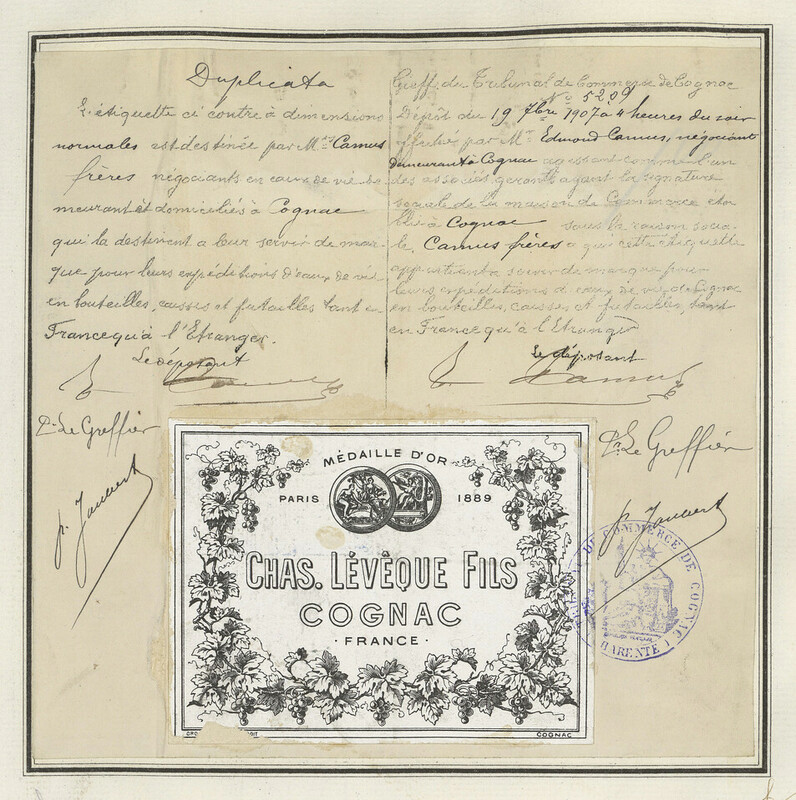 Duplicata
L'étiquette ci contre à dimensions
normales est destinée par Mrs Camus
frères négociants en eaux de vie de
meurant et domiciliés à Cognac
qui la destinent a leur servir de mar-
que pour leurs expéditions d'eaux de vie
en bouteilles, caisses et futailles tant e
France qu'à l'Etranger.
Le déposant
Camus
Pr Le Greffier
p. Jaubert
Greffe du Tribunal de Commerce de Cognac
No 5209
Dépôt du 19 7bre 1907 à 4 heures du soir
effectué par Mr Edmond Camus, négociant
demeurant à Cognac agissant comme l'un
des associés gérants ayant la signature
sociale de la maison de Commerce éta
blie à Cognac sous la raison socia-
le. Camus frères a qui cette étiquette
appartient a servir de marque pour
leurs expéditions d'eaux de vie de Cognac
en bouteilles, caisses et futailles, tant
en France qu'à l'Etranger
Le déposant
Camus
Pr. Le Greffier
p. Jaubert
MÉDAILLE D'OR
PARIS 1889
CHAS. LÉVÊQUE FILS
COGNAC
· FRANCE ·
COGNAC
DE COMMERCE DE COGNAC
CHARENTE